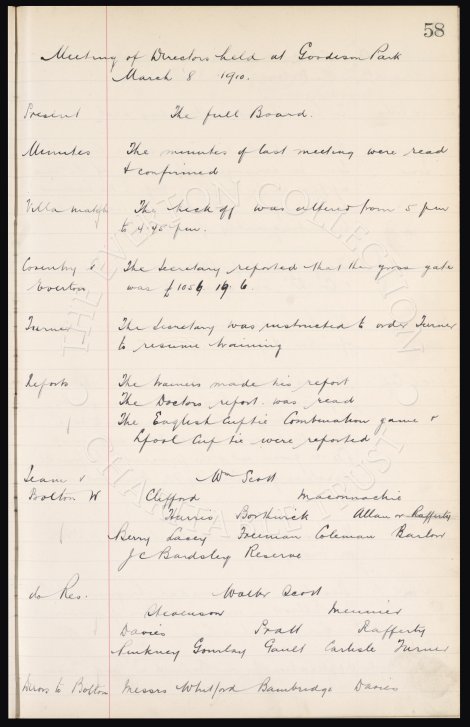 58
Meeting of Directors held at Goodison Park
March 8 1910.
Present The full Board.
Minutes The minutes of last meeting were read
& confirmed
Villa match The kick off was altered from 5 pm
to 4.45 pm.
Coventry & The Secretary reported that the gross gate
Everton was £1056 19 6.
Turner The Secretary was instructed to order Turner
to resume training
Reports The trainers made his report
The Doctors report was read
The English Cuptie Combination game &
Lpool Cup tie were reported
Team v Wm Scott
Bolton W Clifford Maconnachie
Harris Borthwick Allan or Rafferty
Berry Lacey Freeman Coleman Barlow
J C Bardsley Reserve
do Res. Walter Scott
Stevenson Meunier
Davies Pratt Rafferty
Pinkney Gourlay Gault Carlisle Turner
Dirors to Bolton Messrs Whitford Bainbridge Davies
THE EVERTON COLLECTION
CHARITABLE TRUST